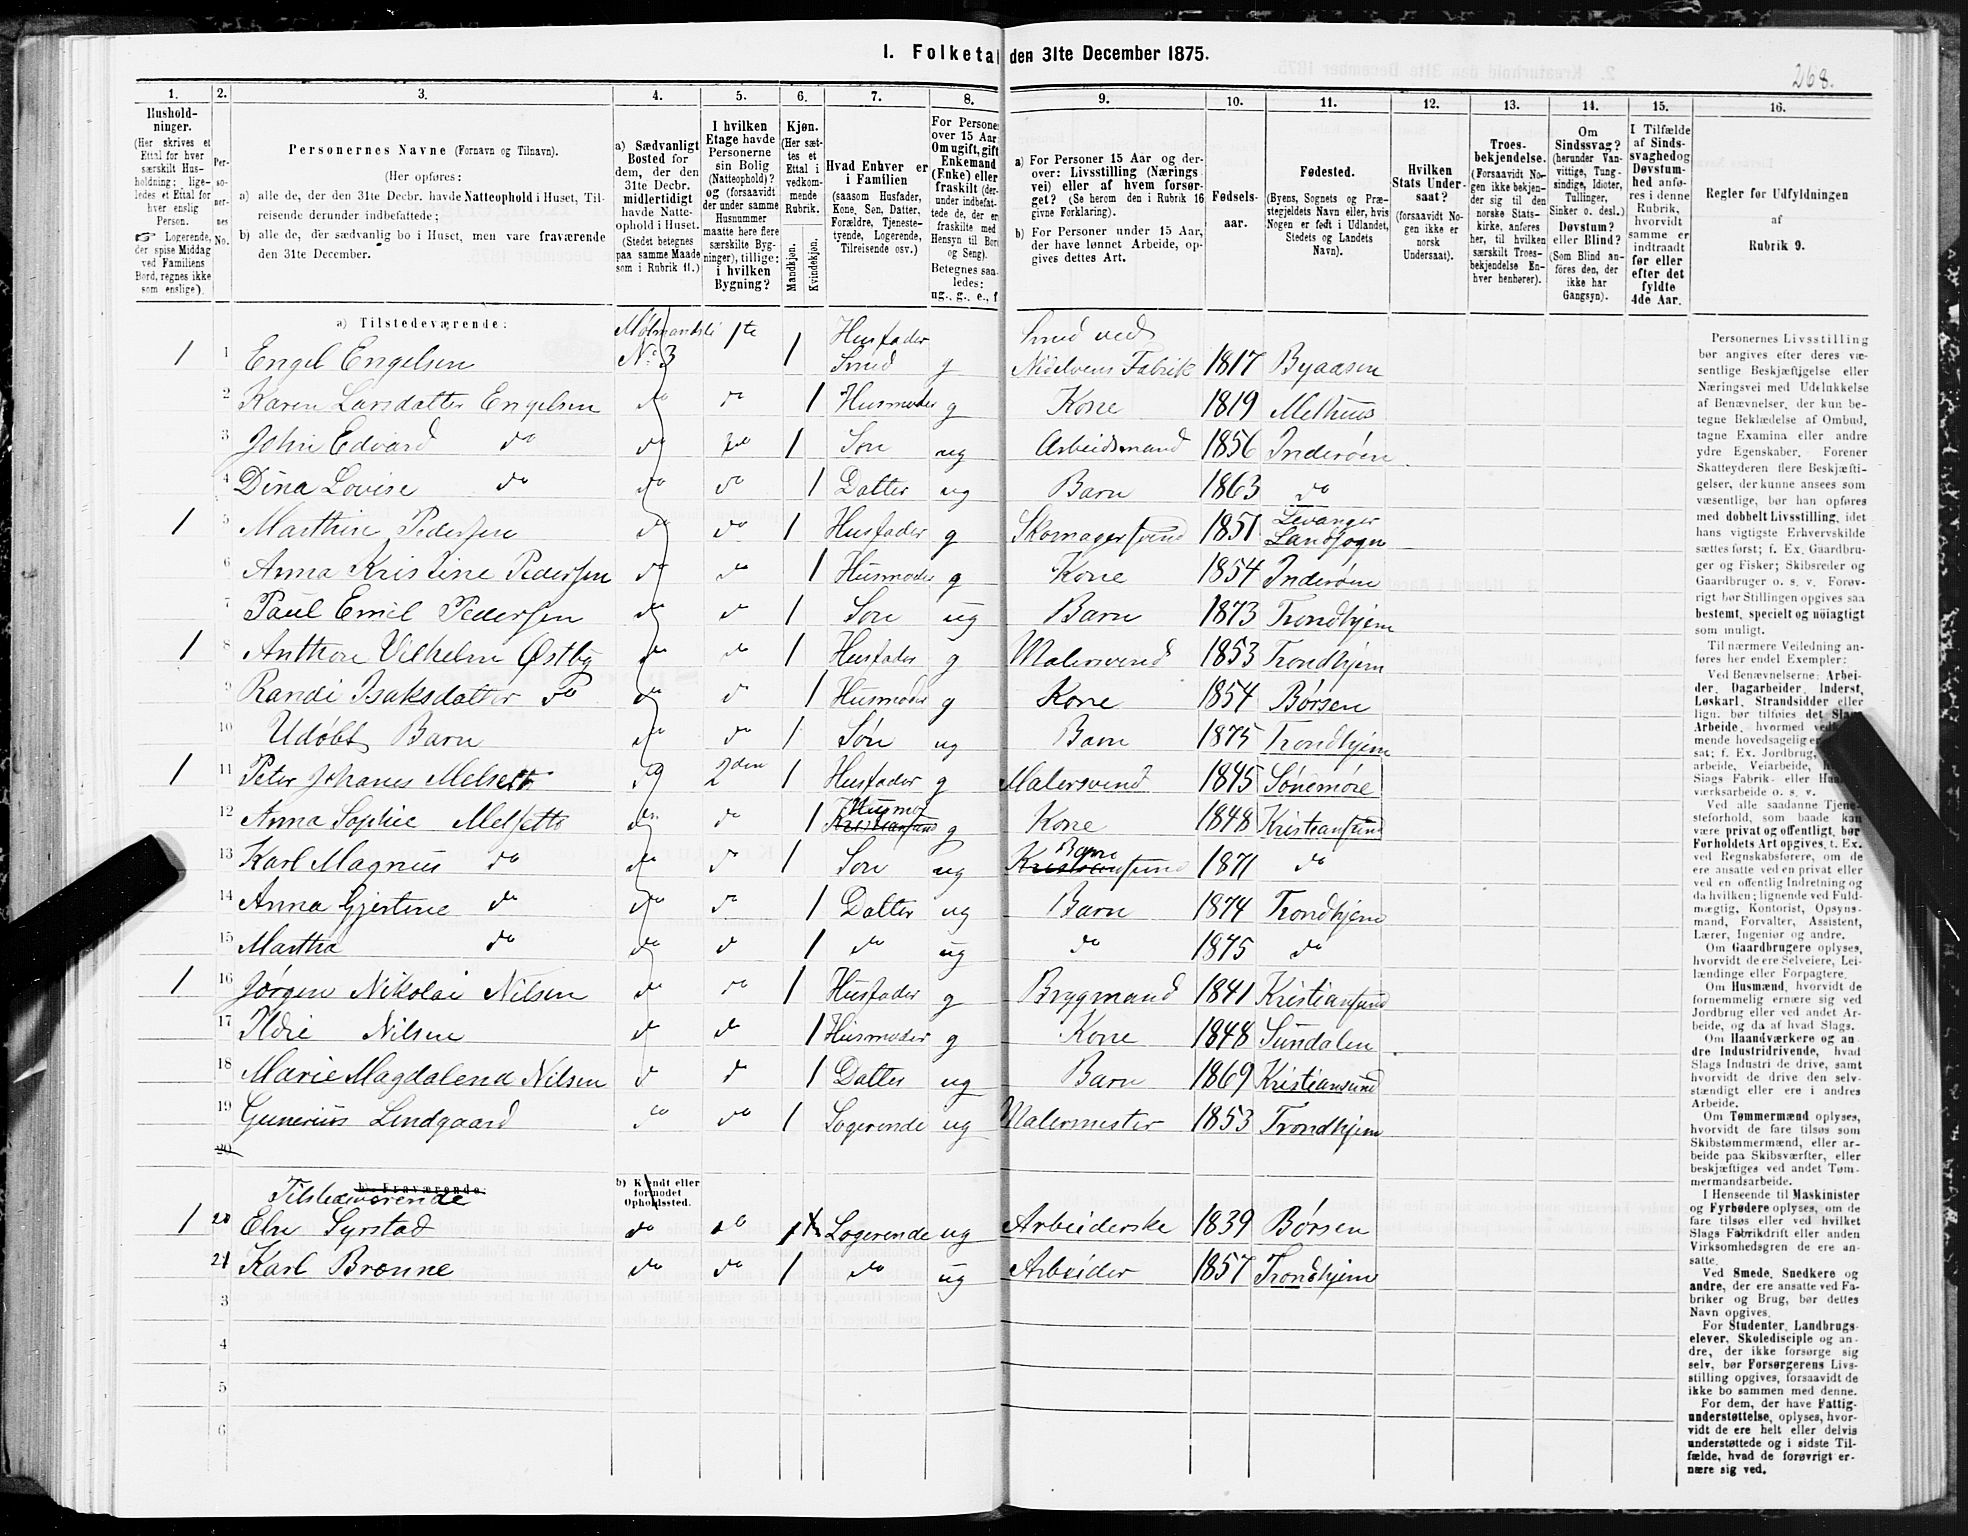 I. Folketal den 31te December 1875.
268.
1. 2. 3. 4. 5. 6. 7. 8. 9. 10. 11. 12. 13. 14. 15. 16.
Hushold-
ninger.
(Her skrives et
Ettal for hver
særskilt Hus-
holdning; lige-
ledes et Ettal for
hver enslig
Person.
☞ Logerende,
der spise Middag
ved Familiens
Bord, regnes ikke
som enslige).
Per-
so-
ner-
nes
No.
Personernes Navne (Fornavn og Tilnavn).
(Her opføres:
a) alle de, der den 31te Decbr. havde Natteophold i Huset, Til-
reisende derunder indbefattede;
b) alle de, der sædvanlig bo i Huset, men vare fraværende
den 31te December.
a) Sædvanligt
Bosted for
dem, der den
31te Decbr.
midlertidigt
havde Natte-
ophold i Huset.
(Stedet betegnes
paa samme Maade
som i Rubrik 11.)
I hvilken
Etage havde
Personerne
sin Bolig
(Natteophold)?
og (forsaavidt
der under samme
Husnummer
maatte høre flere
særskilte Byg-
ninger), tillige:
i hvilken
Bygning?
Kjøn.
(Her sæt-
tes et
Ettal i
vedkom-
mende
Rubrik.
Mandkjøn.
Kvindekjøn.
Hvad Enhver er
i Familien
(saasom Husfader,
Kone, Søn, Datter,
Forældre, Tjeneste-
tyende, Logerende,
Tilreisende osv.)
For Persone
over 15 Aar
Om ugift, gift
Enkemand
(Enke) eller
fraskilt (der-
under indbefat-
tede de, der er
fraskilte med
Hensyn til Bord
og Seng).
Betegnes saa-
ledes:
ug., g., e., f.
a) For Personer 15 Aar og der-
over: Livsstilling (Nærings
vei) eller af hvem forsør-
get? (Se herom den i Rubrik 16
givne Forklaring).
b) For Personer under 15 Aar,
der have lønnet Arbeide, op-
gives dettes Art.
Fødsels-
aar.
Fødested.
(Byens, Sognets og Præ-
stegjeldets Navn eller, hvis
Nogen er født i Udlandet,
Stedets og Landets
Navn).
Hvilken
Stats Under-
saat?
(forsaavidt No-
gen ikke er
norsk
Undersaat).
Troes-
bekjendelse.
(Forsaavidt No-
gen ikke bekjen-
der sig til den
norske Stats-
kirke, anføres
her, til hvilken
særskilt Troes-
bekjendelse En-
hver henhører).
Om
Sindssvag?
(herunder Van-
vittige, Tung-
sindige, Idioter,
Tullinger,
Sinker o. desl.)
Døvstum?
eller Blind?
(Som Blind an-
føres den, der
ikke har
Gangsyn).
I Tilfælde
af Sinds-
svaghed og
Døvstum-
hed anfø-
res i denne
Rubrik,
hvorvidt
samme er
indtraadt
før eller
efter det
fyldte
4de Aar.
Regler for Udfyldningen
af
Rubrik 9.
a) Tilstedeværende:
1 1 Engel Engelsen Mølmandsli No 3 1te 1 Husfader Smed g Smed ved Nidelvens Fabrik 1817 Byaasen
2 Karen Larsdatter Engelsen do do 1 Husmoder g Kone 1819 Melhus
3 John Edvard do do do 1 Søn ug Arbeidsmand 1856 Inderøen
4 Dina Lovise do do do 1 Datter ug Barn 1863 do
1 5 Marthin Pedersen do do 1 Husfader g Skomagersvend 1851 Levanger Landsogn
6 Anna Kristine Pedersen do do 1 Husmoder g Kone 1854 Inderøen
7 Paul Emil Pedersen do do 1 Søn ug Barn 1873 Trondhjem
1 8 Anthon Vilhelm Østby do do 1 Husfader g Malersvend 1853 Trondhjem
9 Randi Isaksdatter do do do 1 Husmoder g Kone 1854 Børsen
10 Udøbt Barn do do 1 Søn ug Barn 1875 Trondhjem
1 11 Peter Johanes Melseth do 2den 1 Husfader g Malersvend 1845 Sønmøre
12 Anna Sophie Melseth do do 1 Kristiansund Husmo g Kone 1848 Kristiansund
13 Karl Magnus do do do 1 Søn ug Kristiansund Barn 1871 do
14 Anna Gjertine do do do 1 Datter ug Barn 1874 Trondhjem
15 Martha do do do 1 do ug do 1875 do
1 16 Jørgen Nikolai Nilsen do do 1 Husfader g Brygmand 1841 Kristiansund
17 Ildri Nilsen do do 1 Husmoder g Kone 1848 Sundalen
18 Marie Magdalena Nilsen do do 1 Datter ug Barn 1869 Kristiansund
19 Gunerius Lindgaard do do 1 Logerende ug Malermester 1853 Trondhjem
20
b) Fraværende:
Tilstedeværende
b) Kjendt eller
formodet
Opholdssted.
1 20 Elen Syrstad do do 1 Logerende ug Arbeiderske 1839 Børsen
21 Karl Brønne do do 1 do ug Arbeider 1857 Trondhjem
3
4
5
6
Personernes Livsstilling
bør angives efter deres væ-
sentlige Beskjæftigelse eller
Næringsvei med Udelukkelse
af Benævnelser, der kun be-
tegne Beklædelse af Ombud,
tagne Examina eller andre
ydre Egenskaber. Forener
Skatteyderen flere Beskjæfti-
gelser, der kunne ansees som
væsentlige, bør han opføres
med dobbelt Livsstilling, idet
hans vigtigste Erhvervskilde
sættes først; f. Ex. Gaardbru-
ger og Fisker; Skibsreder og
Gaardbruger o. s. v. Forøv-
rigt bør Stillingen opgives saa
bestemt, specielt og nöiagtigt
som muligt.
Til nærmere Veiledning an-
føres her endel Exempler:
Ved Benævnelserne: Arbei-
der, Dagarbeider, Inderst,
Løskarl, Strandsidder eller
lign. bør tilføies det Slags
Arbeide, hvormed vedkom-
mende hovedsagelig er
sat; f. Ex. Jordbrug,
arbeide, Veiarbeide,
Slags Fabrik- eller Haand-
værksarbeide o. s. v.
Ved alle saadanne Tjene-
steforhold, som baade kan
være privat og offentligt, bør
Forholdets Art opgives, t. Ex.
ved Regnskabsførere, om de
ere ansatte ved en privat eller
ved en offentlig Indretning og
da hvilken; lignende ved Fuld-
mægtig, Kontorist, Opsyns-
mand, Forvalter, Assistent,
Lærer, Ingeniør og andre.
Om Gaardbrugere oplyses,
hvorvidt de ere Selveiere, Lei-
lændinge eller Forpagtere.
Om Husmænd, hvorvidt de
fornemmelig ernære sig ved
Jordbrug eller ved andet Ar-
beide, og da af hvad Slags.
Om Haandværkere og an-
dre Industridrivende, hvad
Slags Industri de drive, samt
hvorvidt de drive den selv-
stændigt eller ere i andres
Arbeide.
Om Tømmermænd oplyses,
hvorvidt de fare tilsøs som
Skibstømmermænd, eller ar-
beide paa Skibsværfter, eller
beskjæftiges ved andet Tøm-
mermandsarbeide.
I Henseende til Maskinister
og Fyrbødere oplyses, om de
fare tilsøs eller ved hvilket
Slags Fabrikdrift eller anden
Virksomhedsgren de ere an-
satte.
Ved Smede, Snedkere og
andre, der ere ansatte ved Fa-
briker og Brug, bør dettes
Navn opgives.
For Studenter, Landbrugs-
elever, Skoledisciple og an-
dre, der ikke forsørge sig
selv, bør Forsørgerens Livs-
stilling opgives, forsaavidt de
ikke bo sammen med denne.
For dem, der have Fattig-
understøttelse, oplyses, hvor-
vidt de ere helt eller delvis
understøttede og i sidste Til-
fælde, hvad de forøvrigt er-
nære sig ved.